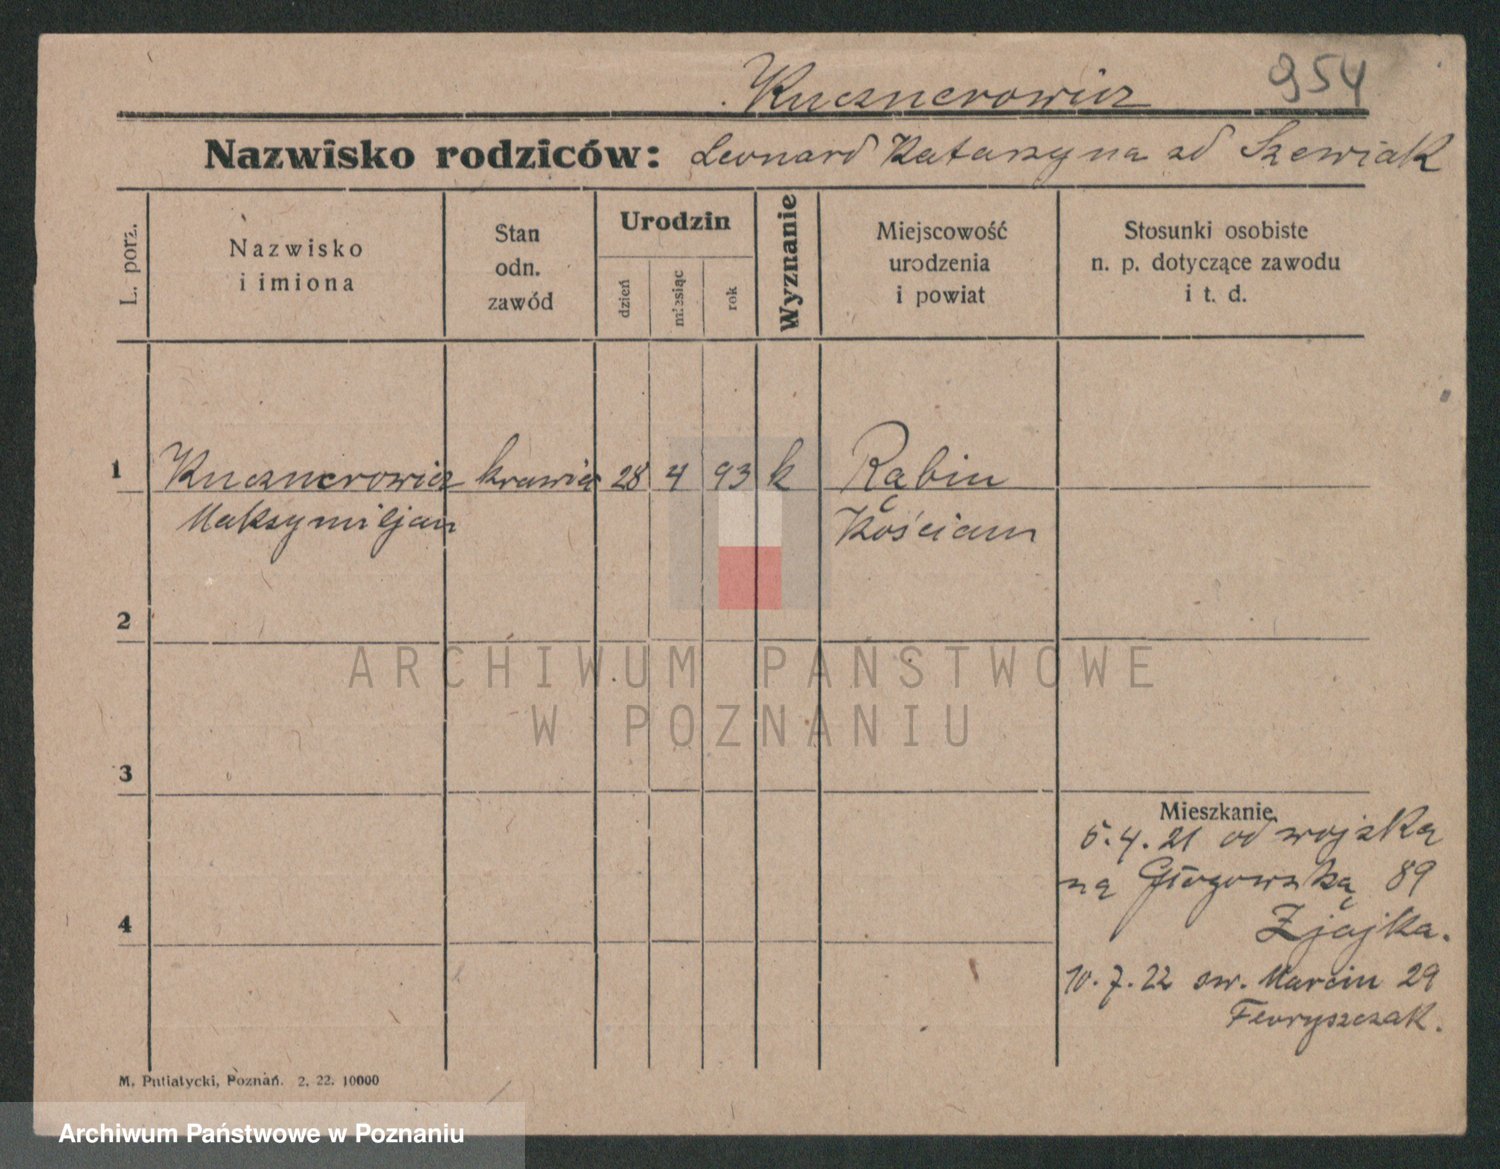 Kucznerowicz 954
Nazwisko rodziców: Leonard Katarzyna zd Szewiak
L. porz.
Nazwisko
i imiona
Stan
odn.
zawód
Urodzin
dzień
miesiąc
rok
Wyznanie
Miejscowość
urodzenia
i powiat
Stosunki osobiste
n. p. dotyczące zawodu
i t. d.
1 Kucznerowicz krawiec 28 4 93 k Rąbin
Maksymiljan Kościan
2
ARCHIWUM PAŃSTWOWE
W POZNANIU
3
Mieszkanie
5.4.21 od wojska
na Głogowska 89
Zjajka.
4
10.7.22 św. Marcin 29
Floryszczak.
M. Putiatycki, Poznań. 2. 22. 10000
Archiwum Państwowe w Poznaniu